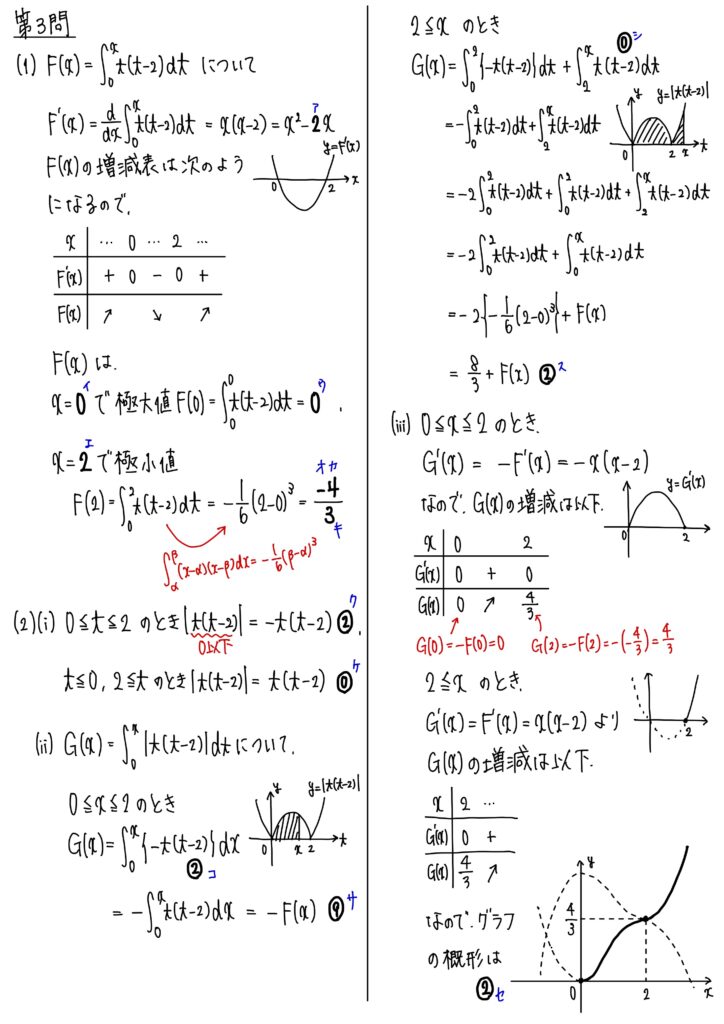 第3問
(1) F(x)=∫₀ˣ t(t-2)dt について
F'(x)=d/dx∫₀ˣ t(t-2)dt = x(x-2)=x²-2x ア
y=F'(x)
F(x)の増減表は次のよう
0 2 x
になるので、
x … 0 … 2 …
F'(x) + 0 - 0 +
F(x) ↗ ↘ ↗
F(x) は、
x=0 イ で 極大値 F(0)=∫₀⁰ t(t-2)dt=0 ウ 、
x=2 エ で極小値
F(2)=∫₀² t(t-2)dt=-1/6(2-0)³=-4/3 オカ キ
∫_α^β (x-α)(x-β)dx=-1/6(β-α)³
(2)(i) 0≦t≦2 のとき |t(t-2)|=-t(t-2) ② ク、
0以下
t≦0, 2≦t のとき |t(t-2)|= t(t-2) ⓪ ケ
(ii) G(x)=∫₀ˣ |t(t-2)|dt について、
0≦x≦2 のとき
y y=|t(t-2)|
0 x 2 t
G(x)=∫₀ˣ {-t(t-2)}dx
② コ
= -∫₀ˣ t(t-2)dx = -F(x) ⑨ サ
2≦x のとき
⓪ シ
G(x)=∫₀² {-t(t-2)}dt + ∫₂ˣ t(t-2)dt
y y=|t(t-2)|
0 2 x t
=-∫₀² t(t-2)dt+∫₂ˣ t(t-2)dt
=-2∫₀² t(t-2)dt+∫₀² t(t-2)dt+∫₂ˣ t(t-2)dt
=-2∫₀² t(t-2)dt+∫₀ˣ t(t-2)dt
=-2{-1/6(2-0)³}+F(x)
= 8/3+F(x) ② ス
(iii) 0≦x≦2 のとき、
G'(x) = -F'(x)=-x(x-2)
y=G'(x)
なので、G(x)の増減は以下、
0 2
x 0 2
G'(x) 0 + 0
G(x) 0 ↗ 4/3
G(0)=-F(0)=0 G(2)=-F(2)=-(-4/3)=4/3
2≦x のとき、
G'(x)=F'(x)=x(x-2) より
2
G(x)の増減は以下、
x 2 …
G'(x) 0 +
G(x) 4/3 ↗
y
4/3
なので、グラフ
の概形は
② セ
0 2 x